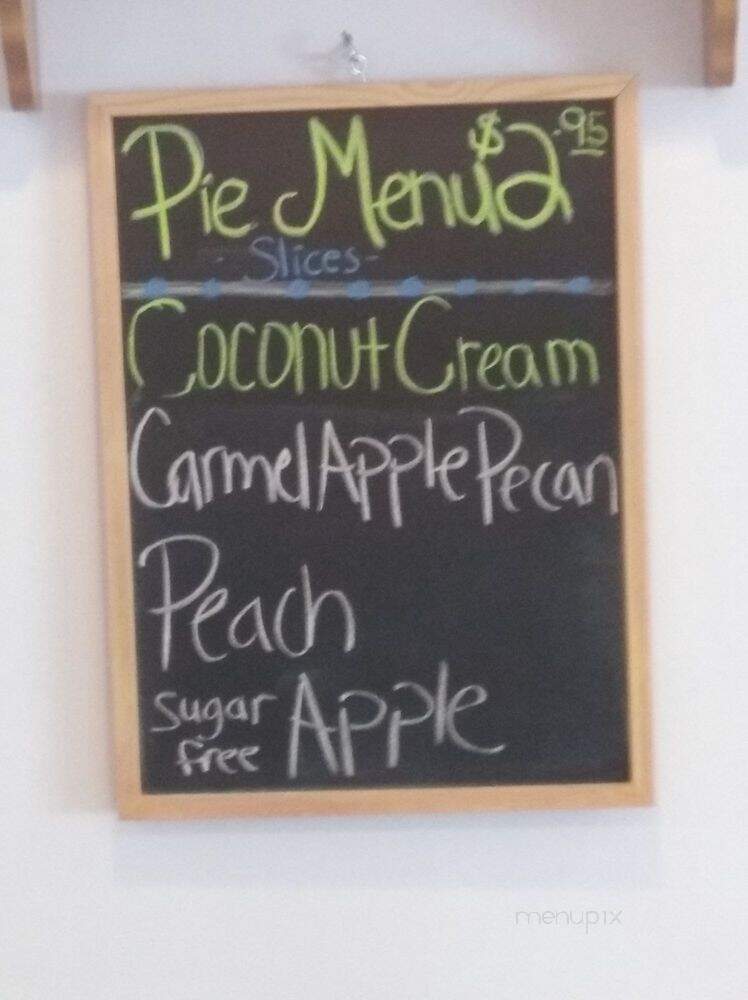 Pie Menu $2.95
- Slices -
Coconut Cream
Carmel Apple Pecan
Peach
sugar free Apple
menupix